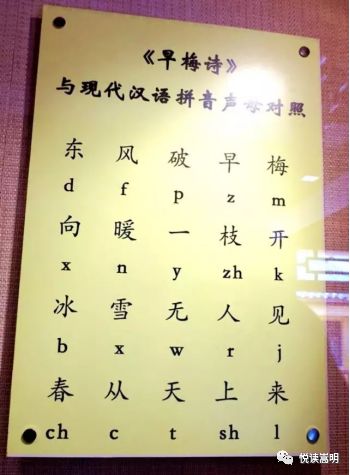 《早梅诗》
与现代汉语拼音声母对照
东 风 破 早 梅
d f p z m
向 暖 一 枝 开
x n y zh k
冰 雪 无 人 见
b x w r j
春 从 天 上 来
ch c t sh l
悦读嵩明